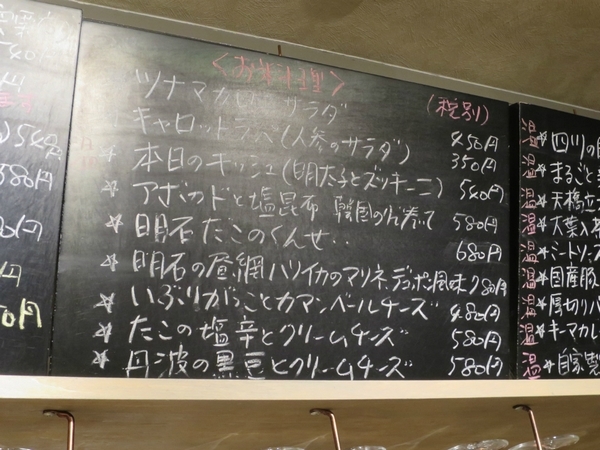 <お料理>
(税別)
ツナマカロニサラダ 450円
キャロットラペ(人参のサラダ) 350円
☆ 本日のキッシュ(明太子とズッキーニ) 540円
☆ アボカドと塩昆布 韓国のり巻いて 580円
☆ 明石だこのくんせい 680円
☆ 明石の昼網ハリイカのマリネ デコポン風味 780円
☆ いぶりがっことカマンベールチーズ 480円
☆ たこの塩辛とクリームチーズ 580円
☆ 丹波の黒豆とクリームチーズ 580円
540円
580円
温 ☆ 四川の
温 ☆ まるごと
温 ☆ 天橋立
温 ☆ 大葉入
温 ☆ ミートソース
温 ☆ 国産豚
温 ☆ 厚切り
温 ☆ キーマカレー
温 ☆ 自家製